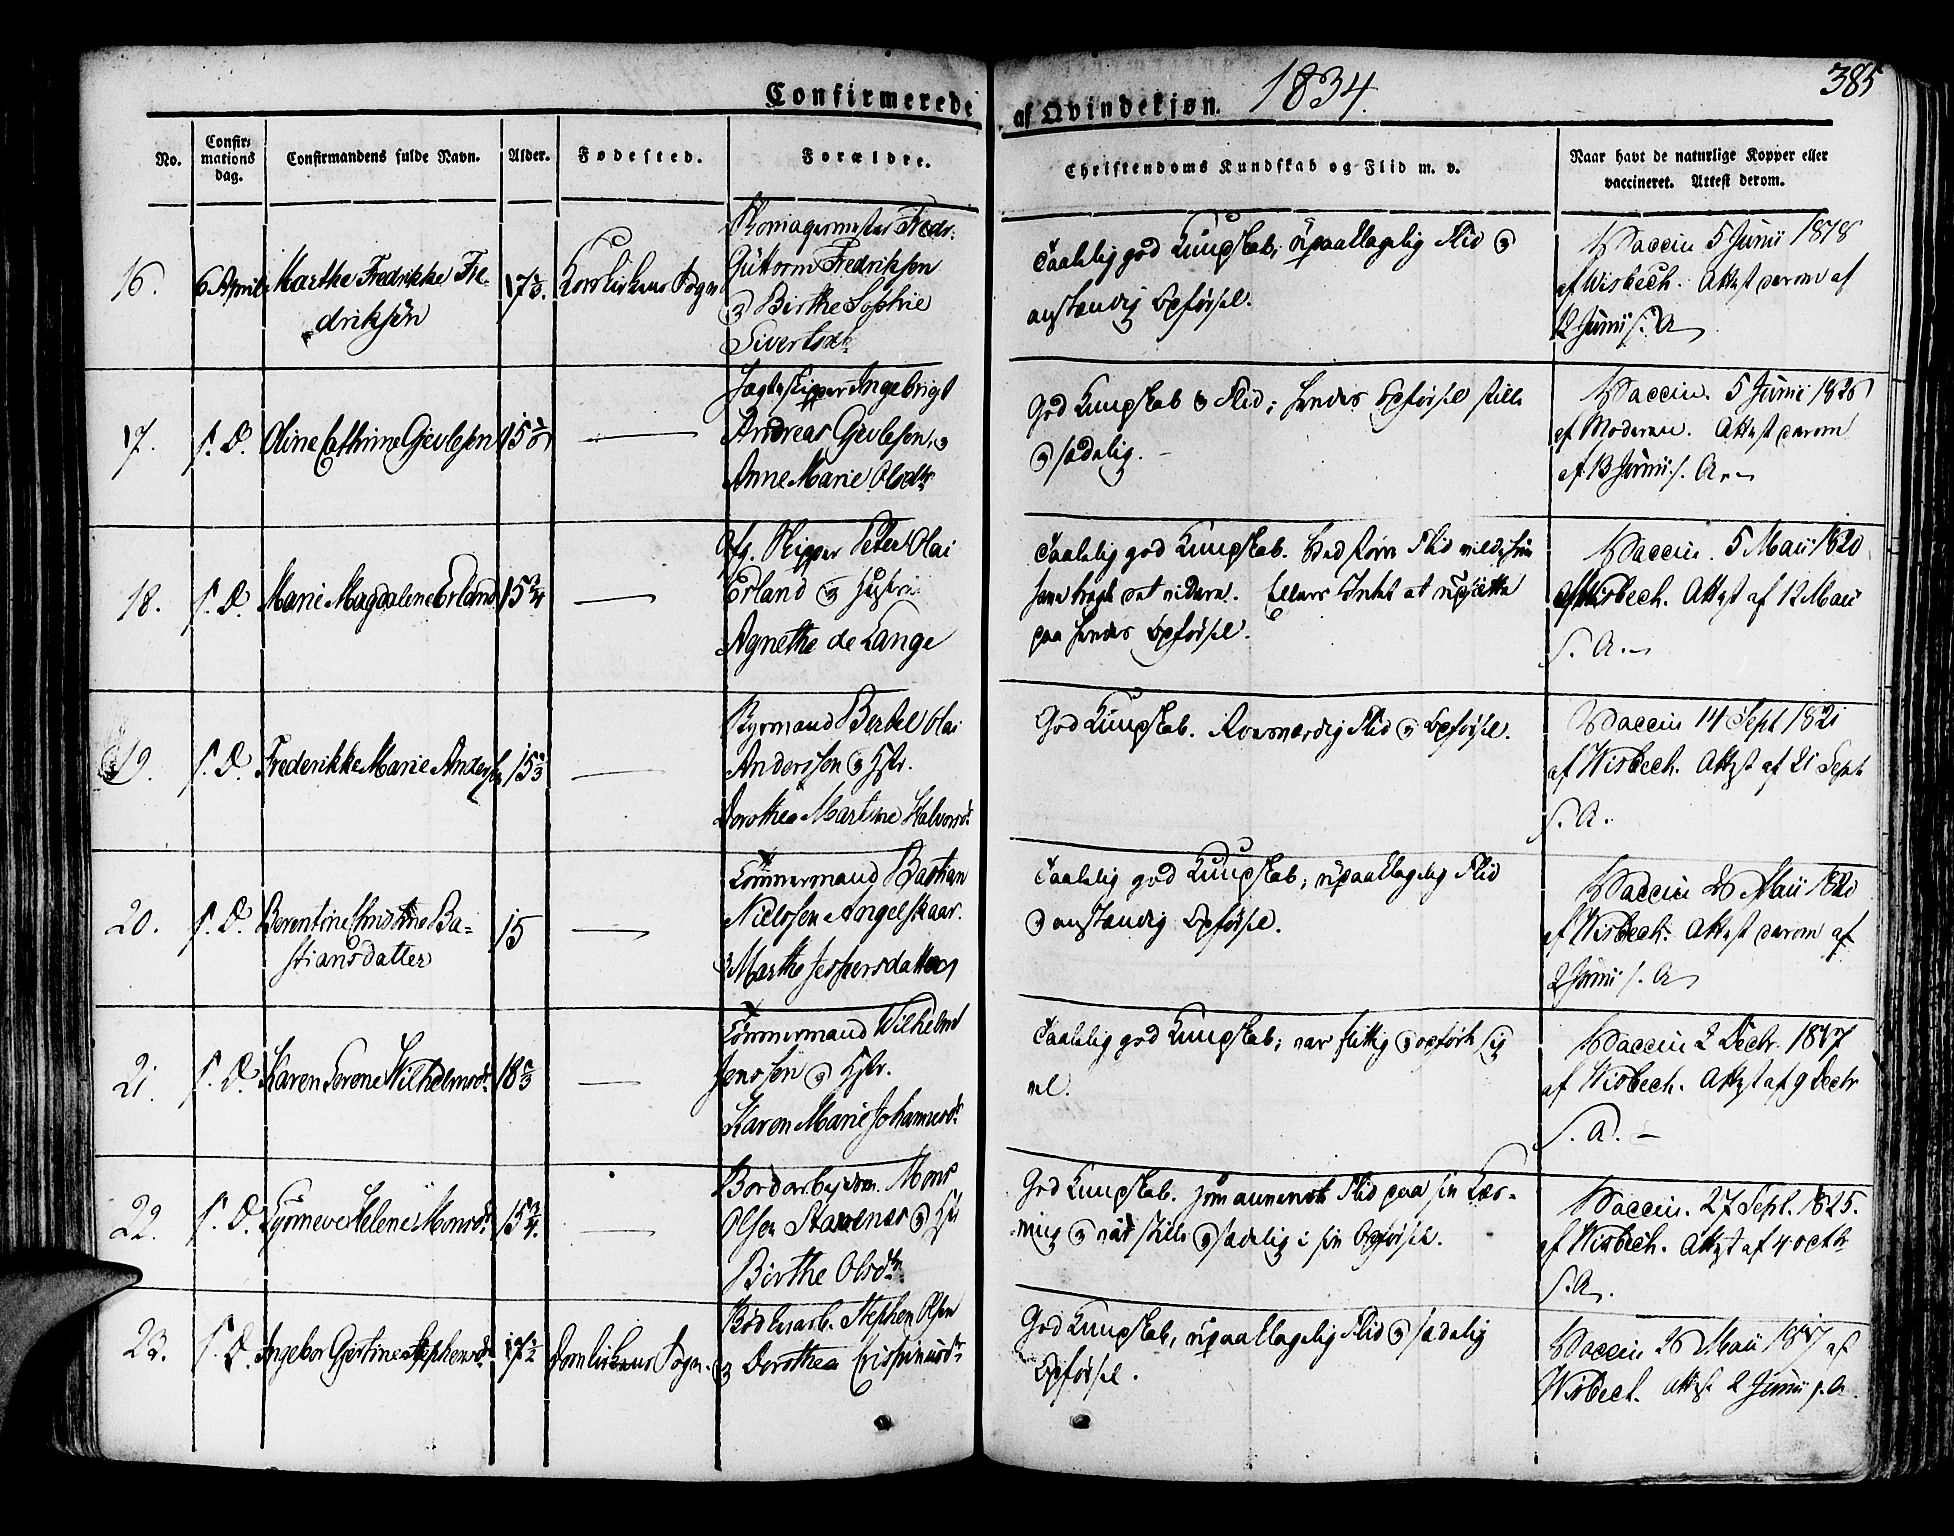 Confirmerede af Qvindekjøn. 1834. 385
No. Confirmations dag. Confirmandens fulde Navn. Alder. Fødested. Forældre. Christendoms Kundskab og Flid m. v. Naar havt de naturlige Kopper eller vaccineret. Attest derom.
16. 6 April Marthe Fredrikke Fre-
driksön
Korskirkens Sogn
Skomagermester Fredr:
Guttorm Fredriksen
og Birthe Sophie
Sivertsdtr
Taalelig god Kundskab; upaaklagelig Flid og
anstændig Opførsel.
Vaccin 5 Junii 1818
af Wisbech. Attest derom af
12 Junii s. A
17. s. D. Oline Cathrine Gjevlesen
Jagteskipper Ingebrigt
Andreas Gjevlesen, og
Anne Marie Olsdtr
God Kundskab og Flid; hendes Opførsel stille
og sædelig.
Vaccin. 5 Junii
af Moderen. Attest derom
af 13 Junii s. A.
18. s. D. Marie Magdalene Erland 15 3/4
Skipper Peter Olai
Erland og Hustru
Agnethe de Lange
Taalelig god Kundskab. Ved større Flid vilde hun
have bragt det videre. Ellers Intet at udsætte
paa hendes Opførsel.
Vaccin. 5 Maii 1820
af Wisbech. Attest af 12 Maii
s. A.
19. s. D. Frederikke Marie Anders
Byemand Berthel Olai
Anderssen og Hstr.
Dorothea Martine Halvorsdr
God Kundskab. Roesværdig Flid og Opførsel.
Vaccin 14 Sept 1821
af Wisbech. Attest af 21 Sept
s. A.
20. s. D. Berentine Christine Ba-
stiansdatter
15
Tömmermand Bastian
Nielssen Angelskaar.
og Marthe Jespersdatter
Taalelig god Kundskab; upaaklagelig Flid
og anstændig Opførsel.
Vaccin 26 Maii 1820
af Wisbech. Attest derom af
2 Junii s. A
21. s. D. Karen Serene Wilhelmsdr
Tömmermand Wilhelm
Jenssen og Hstr.
Karen Marie Johannesdr
Taalelig god Kundskab; var flittig og opførte sig
vel.
Vaccin 2 Decbr. 1817
af Wisbech. Attest af 9 Decbr
s. A.
22. s. D. Synneve Helene Monsdr 15 3/4.
Bordarbejdsm. Mons
Olsen Stavenes og Hstr
Birthe Olsdtr
God Kundskab. Han anvendt Flid paa sin Læs-
ning og var stille og sædelig i sin Opførsel.
Vaccin. 27 Sept. 1825.
af Wisbech. Attest af 4 Octbr
s. A.
23. s. D. Ingebor Gjertine Stephensdr 17 1/2 Domkirkens Sogn.
Stephen Olsen
og Dorothea Crispinusdr
God Kundskab, upaaklagelig Flid og sædelig
Opførsel.
Vaccin 26 Maii 1817 af
Wisbech. Attest 2 Junii s. A.